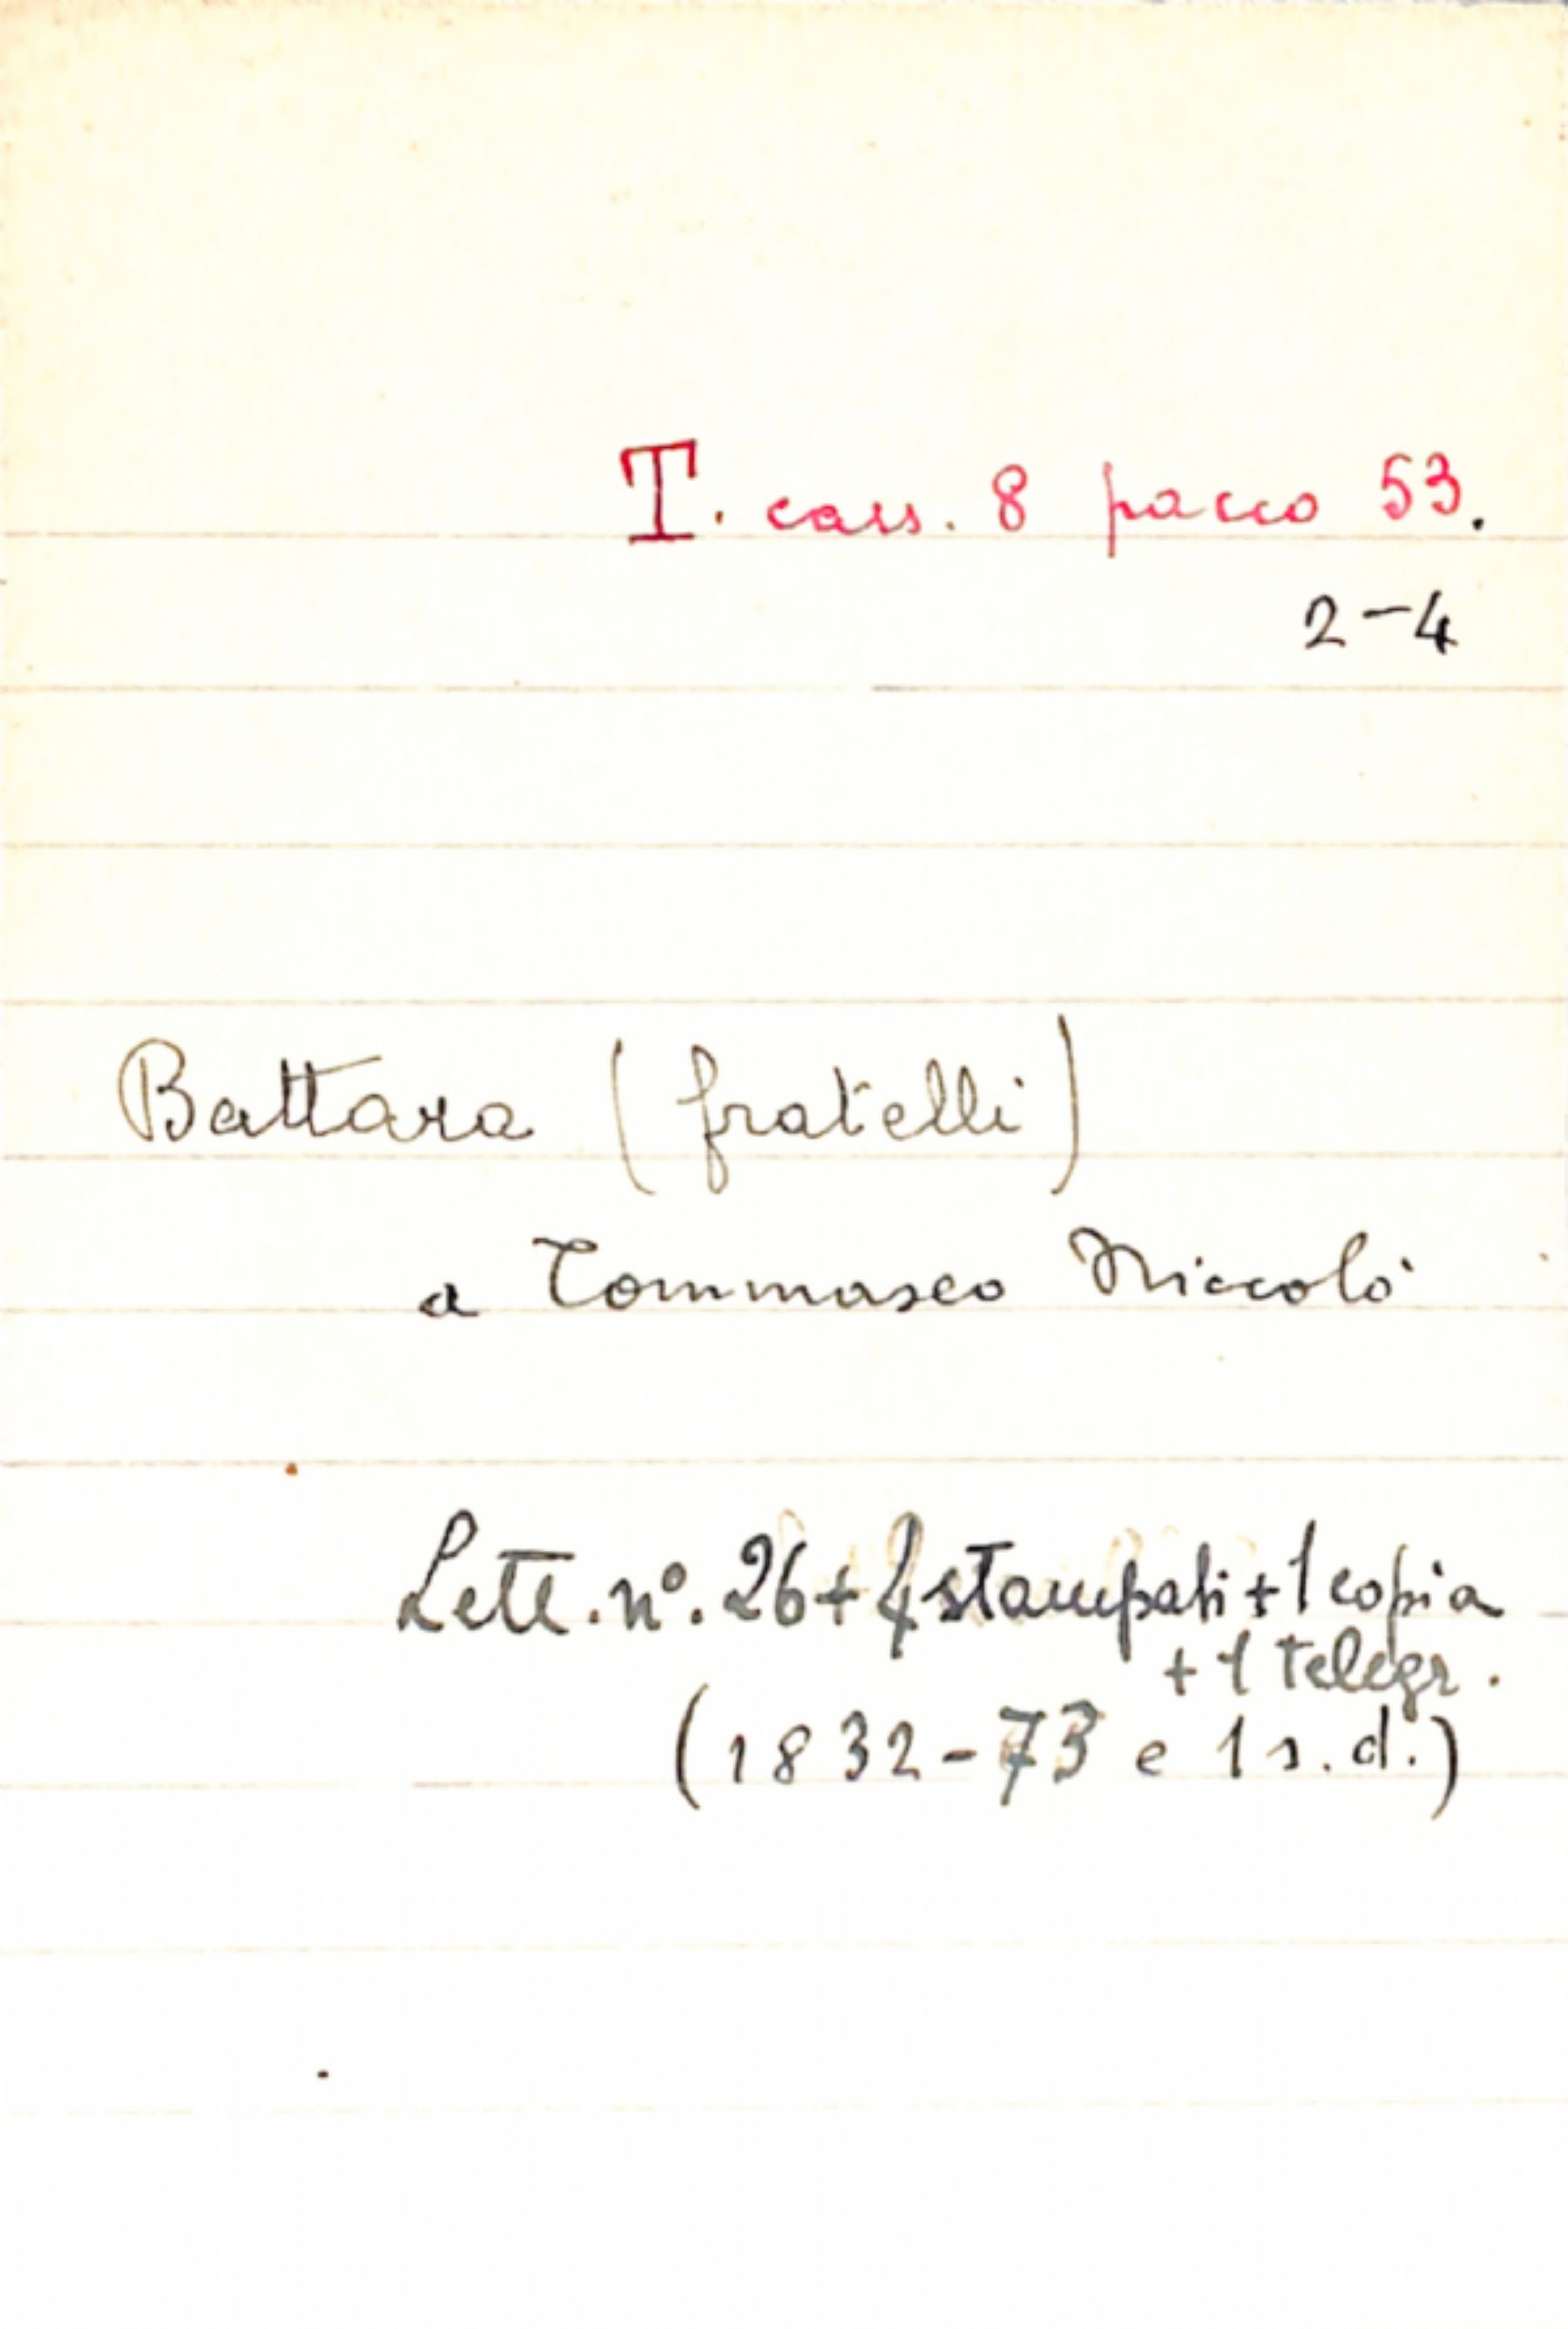 T. cass. 8 pacco 53.
2-4
Battara (fratelli)
a Tommaseo Niccolò
Lett. nº. 26+4 stampati+1 copia
+1 telegr.
(1832-73 e 1 s.d.)